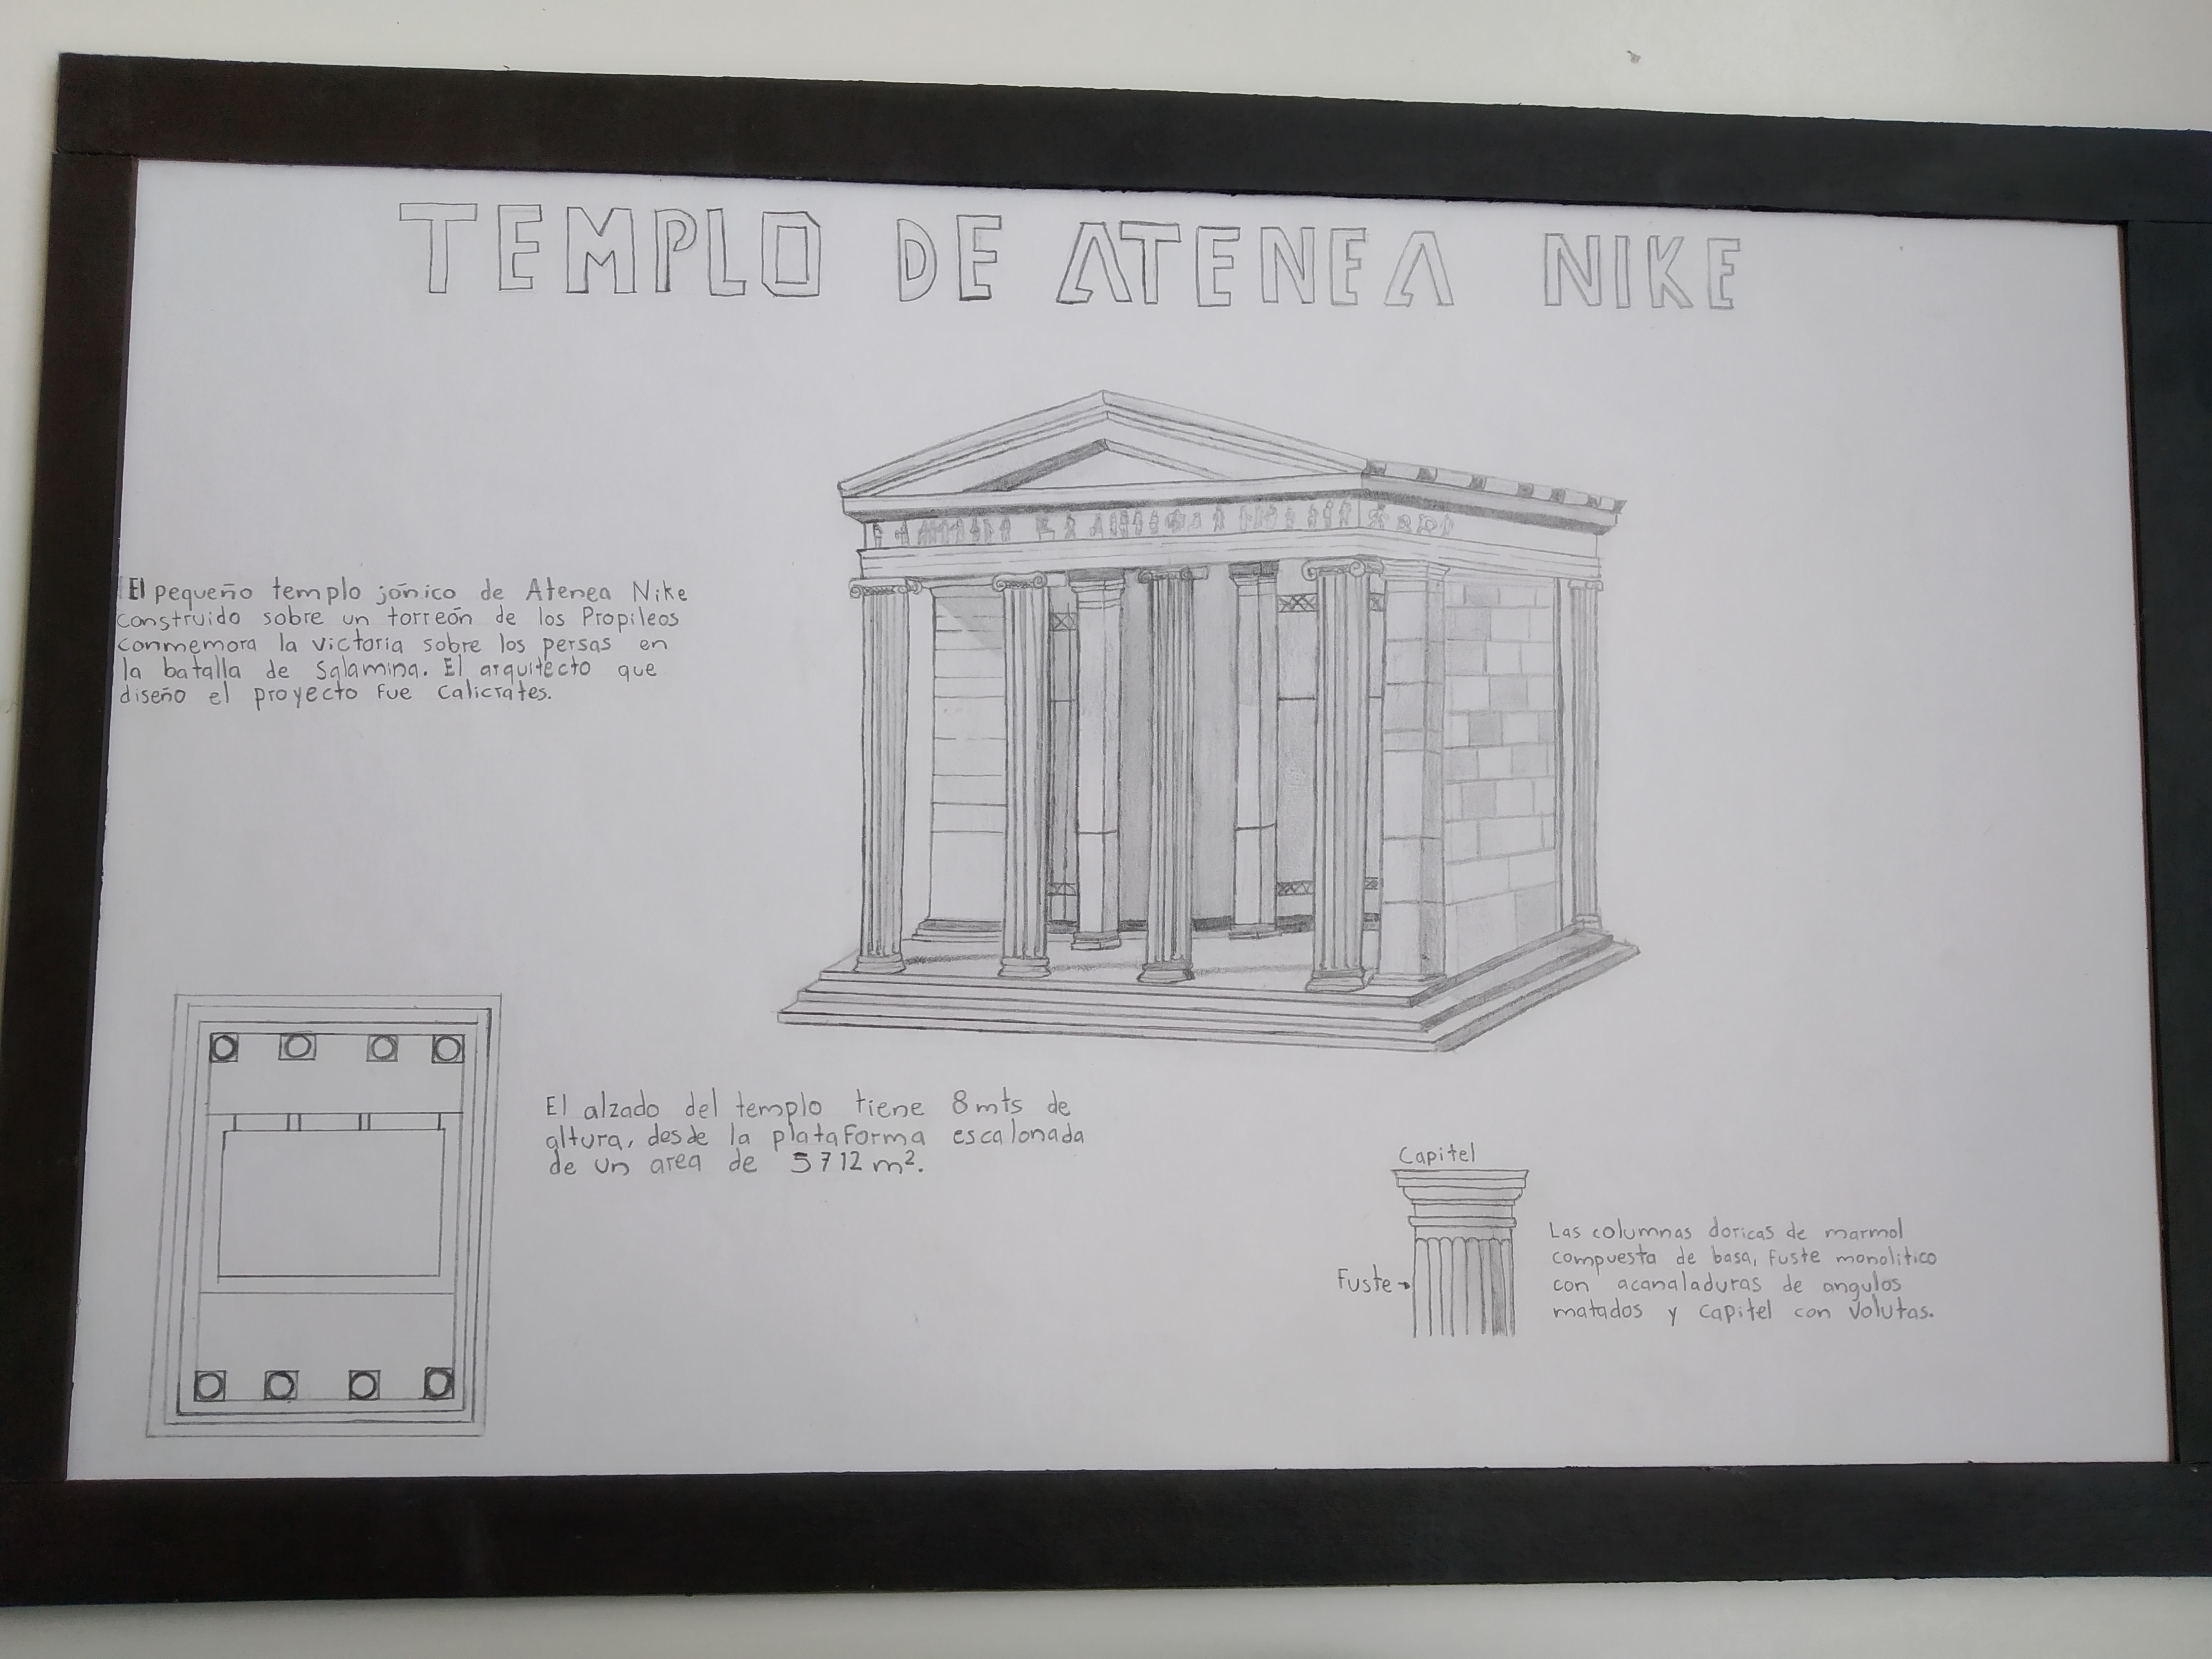 TEMPLO DE ATENEA NIKE
El pequeño templo jónico de Atenea Nike
construido sobre un torreón de los Propileos
conmemora la victoria sobre los persas en
la batalla de Salamina. El arquitecto que
diseño el proyecto fue Calicrates.
El alzado del templo tiene 8mts de
altura, desde la plataforma escalonada
de un area de 5712 m².
Capitel
Fuste
Las columnas doricas de marmol
compuesta de basa, fuste monolitico
con acanaladuras de angulos
matados y capitel con volutas.